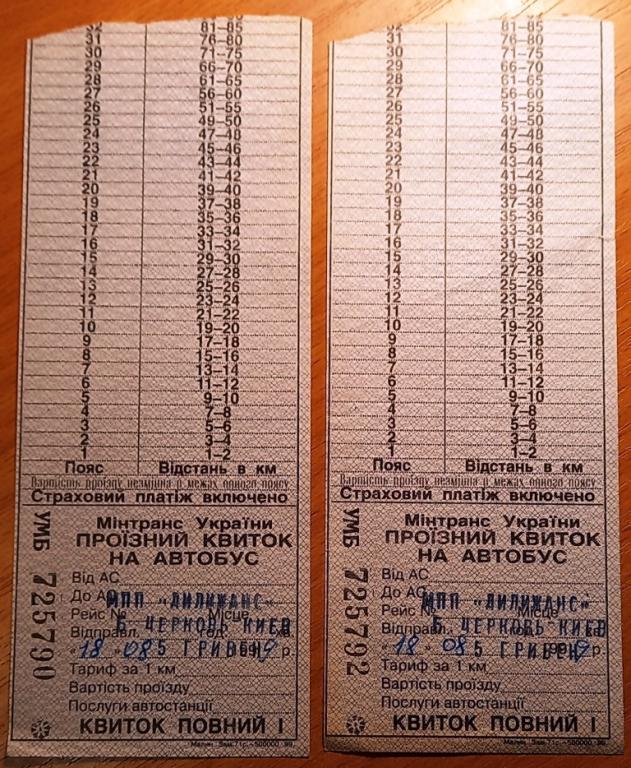 32 81–85
31 76–80
30 71–75
29 66–70
28 61–65
27 56–60
26 51–55
25 49–50
24 47–48
23 45–46
22 43–44
21 41–42
20 39–40
19 37–38
18 35–36
17 33–34
16 31–32
15 29–30
14 27–28
13 25–26
12 23–24
11 21–22
10 19–20
9 17–18
8 15–16
7 13–14
6 11–12
5 9–10
4 7–8
3 5–6
2 3–4
1 1–2
Пояс Відстань в км
Вартість проїзду незмінна в межах одного поясу
Страховий платіж включено
УМБ
725790
Мінтранс України
ПРОЇЗНИЙ КВИТОК
НА АВТОБУС
Від АС
До АС
МПП "ДИЛИЖАНС"
Рейс № Місце
Б. ЦЕРКОВЬ КИЕВ
Відправл. год. хв.
5 ГРИВЕН
"18" 08 1999 р.
Тариф за 1 км
Вартість проїзду
Послуги автостанції
КВИТОК ПОВНИЙ І
Малин. Зам. 71с. –500000 .99.
32 81–85
31 76–80
30 71–75
29 66–70
28 61–65
27 56–60
26 51–55
25 49–50
24 47–48
23 45–46
22 43–44
21 41–42
20 39–40
19 37–38
18 35–36
17 33–34
16 31–32
15 29–30
14 27–28
13 25–26
12 23–24
11 21–22
10 19–20
9 17–18
8 15–16
7 13–14
6 11–12
5 9–10
4 7–8
3 5–6
2 3–4
1 1–2
Пояс Відстань в км
Вартість проїзду незмінна в межах одного поясу
Страховий платіж включено
УМБ
725792
Мінтранс України
ПРОЇЗНИЙ КВИТОК
НА АВТОБУС
Від АС
До АС
МПП "ДИЛИЖАНС"
Рейс № Місце
Б. ЦЕРКОВЬ КИЕВ
Відправл. год. хв.
5 ГРИВЕН
"18" 08 1999 р.
Тариф за 1 км
Вартість проїзду
Послуги автостанції
КВИТОК ПОВНИЙ І
Малин. Зам. 71с. –500000 .99.